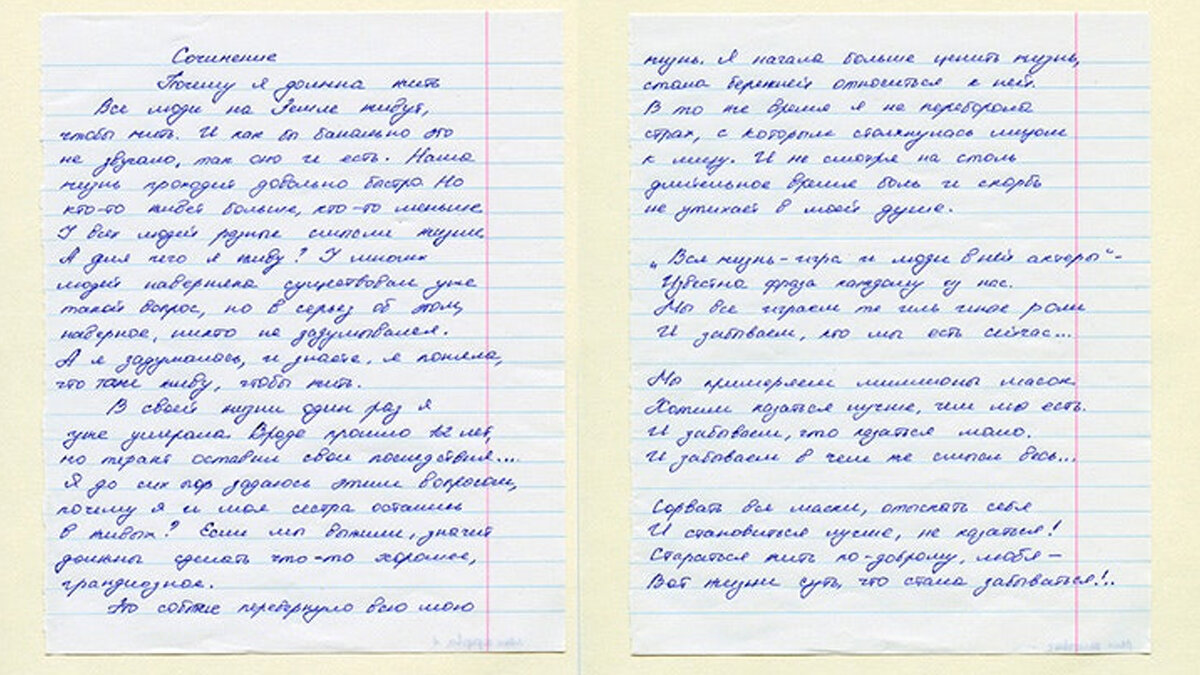 Сочинение
Почему я должна жить
Все люди на Земле живут,
чтобы жить. И как бы банально это
не звучало, так оно и есть. Наша
жизнь проходит довольно быстро. Но
кто-то живет больше, кто-то меньше.
У всех людей разные смыслы жизни.
А для чего я живу? У многих
людей наверняка существовал уже
такой вопрос, но в серьез об этом,
наверное, никто не задумывался.
А я задумалась, и знаете, я поняла,
что тоже живу, чтобы жить.
В своей жизни один раз я
уже умирала. Вроде прошло 12 лет,
но теракт оставил свои последствия....
Я до сих пор задаюсь этим вопросом,
почему я и моя сестра остались
в живых? Если мы выжили, значит
должны сделать что-то хорошее,
грандиозное.
Это событие перевернуло всю мою
жизнь. Я начала больше ценить жизнь,
стала бережней относиться к ней.
В то же время я не переборола
страх, с которым столкнулась лицом
к лицу. И не смотря на столь
длительное время боль и скорбь
не утихает в моей душе.
„Вся жизнь - игра и люди в ней актеры" -
Известна фраза каждому из нас.
Мы все играем те или иные роли
И забываем, кто мы есть сейчас...
Мы примеряем миллионы масок
Хотим казаться лучше, чем мы есть.
И забываем, что казаться мало.
И забываем в чем же смысл весь...
Сорвать все маски, отыскать себя
И становиться лучше, не казаться!
Стараться жить по-доброму, любя –
Вот жизни суть, что стала забываться!..